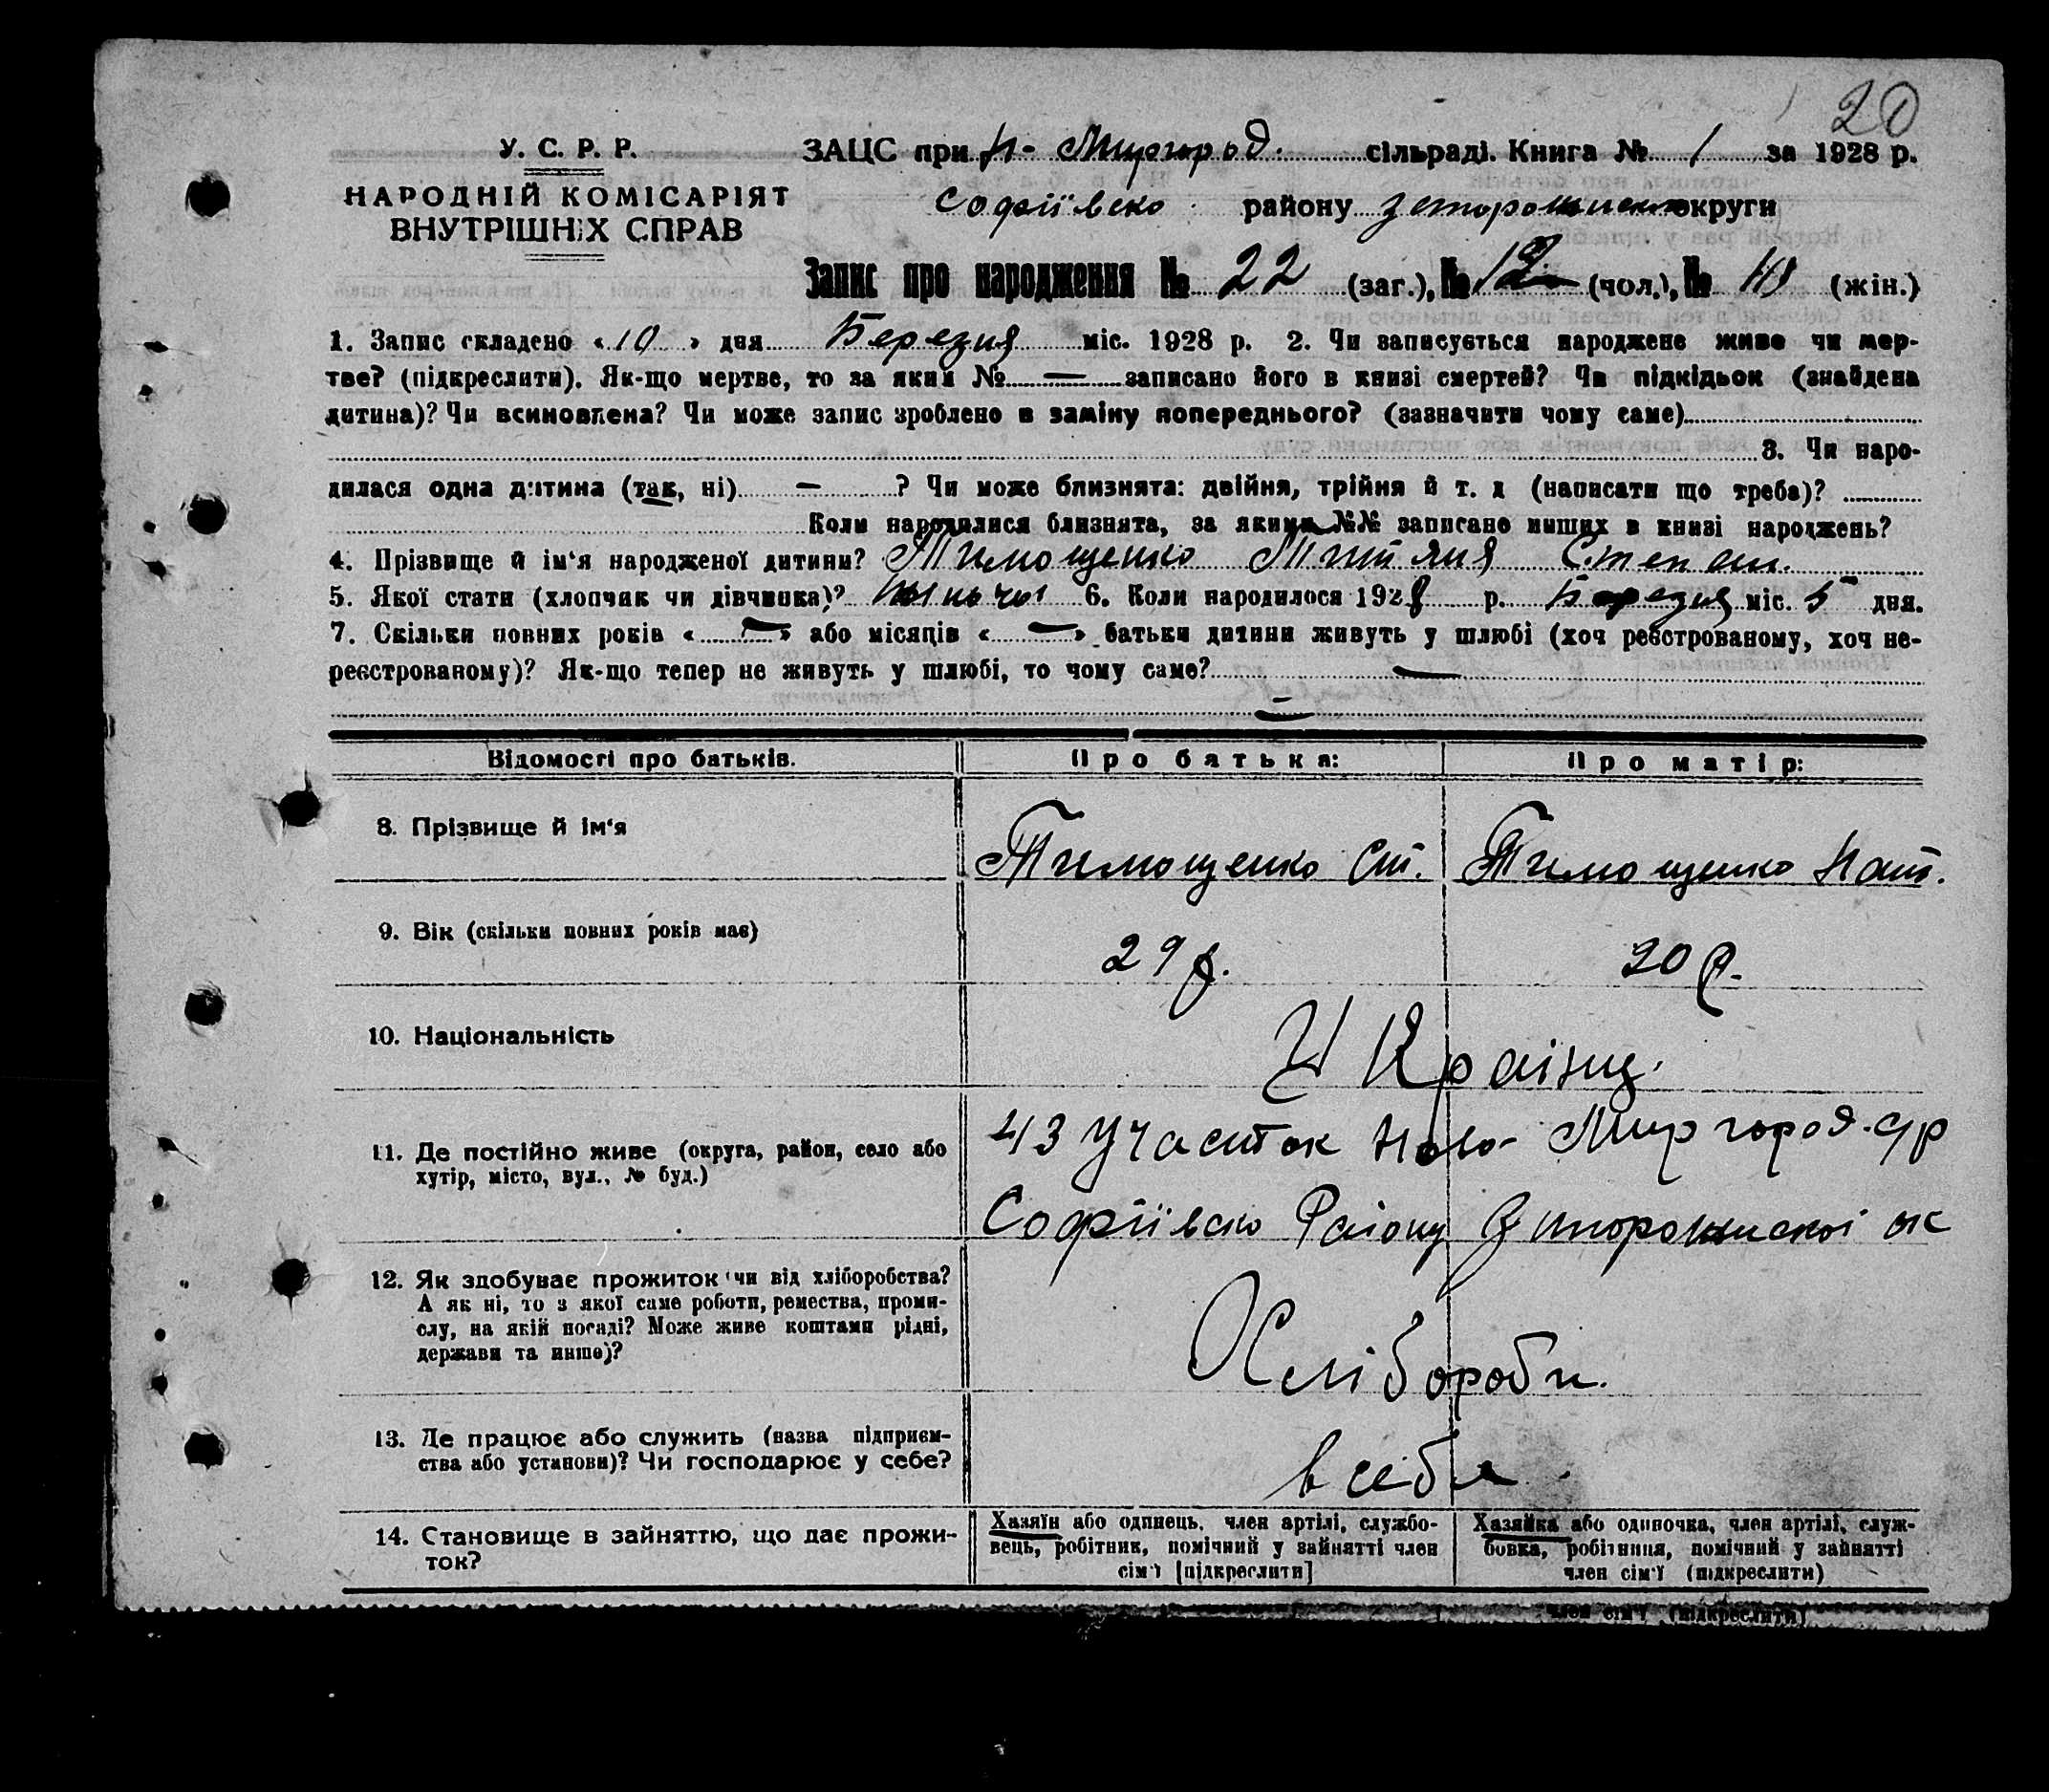 20
У. С. Р. Р.
НАРОДНІЙ КОМІСАРІЯТ
ВНУТРІШНІХ СПРАВ
ЗАЦС при Н- Миргород. сільраді. Книга № 1 за 1928 р.
Софіївсько району округи
Запис про народження № 22 (заг.), № 12 (чол.), № 10 (жін.)
1. Запис складено «10» дня Березня міс. 1928 р. 2. Чи записується народжене живе чи мер-
тве? (підкреслити). Як-що мертве, то за яким № — записано його в книзі смертей? Чи підкідьок (знайдена
дитина)? Чи всиновлена? Чи може запис зроблено в заміну попереднього? (зазначити чому саме)
3. Чи наро-
дилася одна дитина (так, ні) — ? Чи може близнята: двійня, трійня й т. д (написати що треба)?
Коли народилися близнята, за якими №№ записано инших в книзі народжень?
4. Прізвище й ім‘я народженої дитини? Тимощенко Степан.
5. Якої стати (хлопчик чи дівчинка)? 6. Коли народилося 1928 р. Березня міс. 5 дня.
7. Скільки повних років « — » або місяців « — » батьки дитини живуть у шлюбі (хоч реєстрованому, хоч не-
реєстрованому)? Як-що тепер не живуть у шлюбі, то чому саме? —
—
Відомості про батьків. Про батька: Про матір:
8. Прізвище й ім‘я Тимощенко Ст. Тимощенко Нат.
9. Вік (скільки повних років має) 29 р. 20 р.
10. Національність Українц.
11. Де постійно живе (округа, район, село або
хутір, місто, вул., № буд.)
43 Участок Ново- Миргород. с/р
Софіївсько Району ок
12. Як здобуває прожиток чи від хліборобства?
А як ні, то з якої саме роботи, ремества, проми-
слу, на якій посаді? Може живе коштами рідні,
держави та инше)?
Хлібороби.
13. Де працює або служить (назва підприєм-
ства або установи)? Чи господарює у себе?
в себе.
14. Становище в зайняттю, що дає прожи-
ток?
Хазяїн або одинець, член артілі, службо-
вець, робітник, помічний у зайнятті член
сім‘ї [підкреслити]
Хазяйка або одиночка, член артілі, служ-
бовка, робітниця, помічний у зайнятті
член сім‘ї (підкреслити)
член сім‘ї (підкреслити)